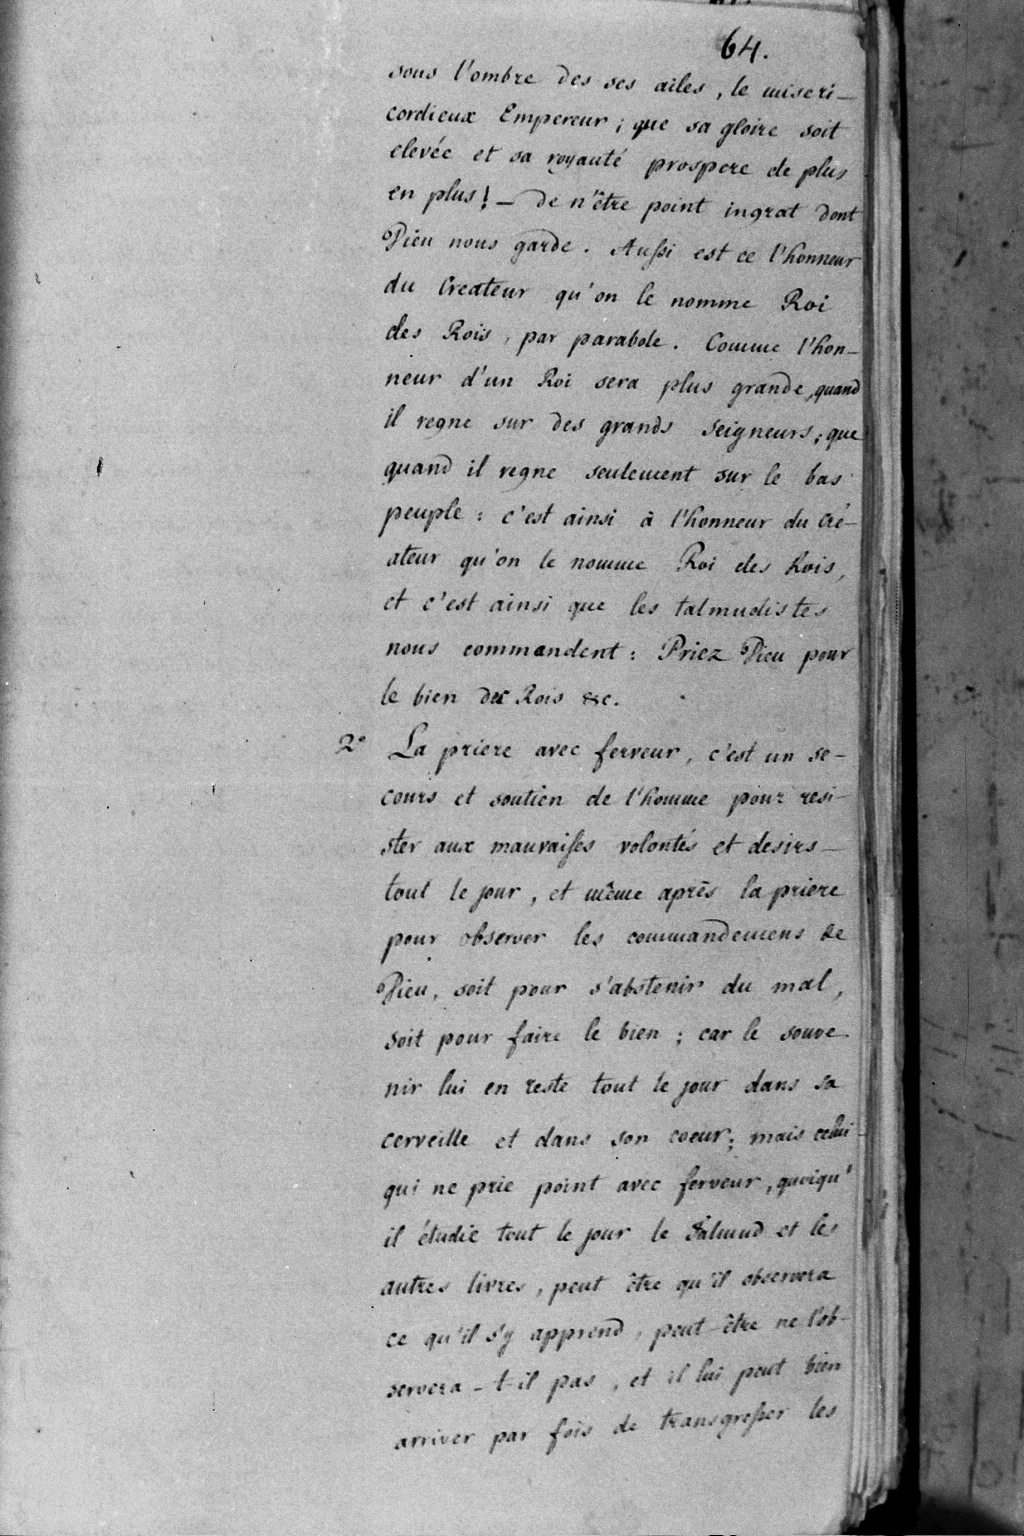 64.
sous l'ombre des ses ailes, le miseri-
cordieux Empereur; que sa gloire soit
elevée et sa royauté prospere de plus
en plus! - de n'être point ingrat dont
Dieu nous garde. Aussi est ce l'honneur
du Createur qu'on le nomme Roi
des Rois, par parabole. Comme l'hon-
neur d'un Roi sera plus grande, quand
il regne sur des grands seigneurs; que
quand il regne seulement sur le bas
peuple: c'est ainsi à l'honneur du Cré-
ateur qu'on le nomme Roi des Rois,
et c'est ainsi que les talmudistes
nous commandent: Priez Dieu pour
le bien des Rois &c.
2° La priere avec ferveur, c'est un se-
cours et soutien de l'homme pour resi-
ster aux mauvaises volontés et desirs-
tout le jour, et même après la priere
pour observer les commandemens de
Dieu, soit pour s'abstenir du mal,
soit pour faire le bien; car le souve
nir lui en reste tout le jour dans sa
cerveille et dans son coeur; mais celui-
qui ne prie point avec ferveur, quoiqu'
il étudie tout le jour le Talmud et les
autres livres, peut être qu'il observera
ce qu'il s'y apprend, peut-être ne l'ob-
servera-t-il pas, et il lui peut bien
arriver par fois de transgresser les